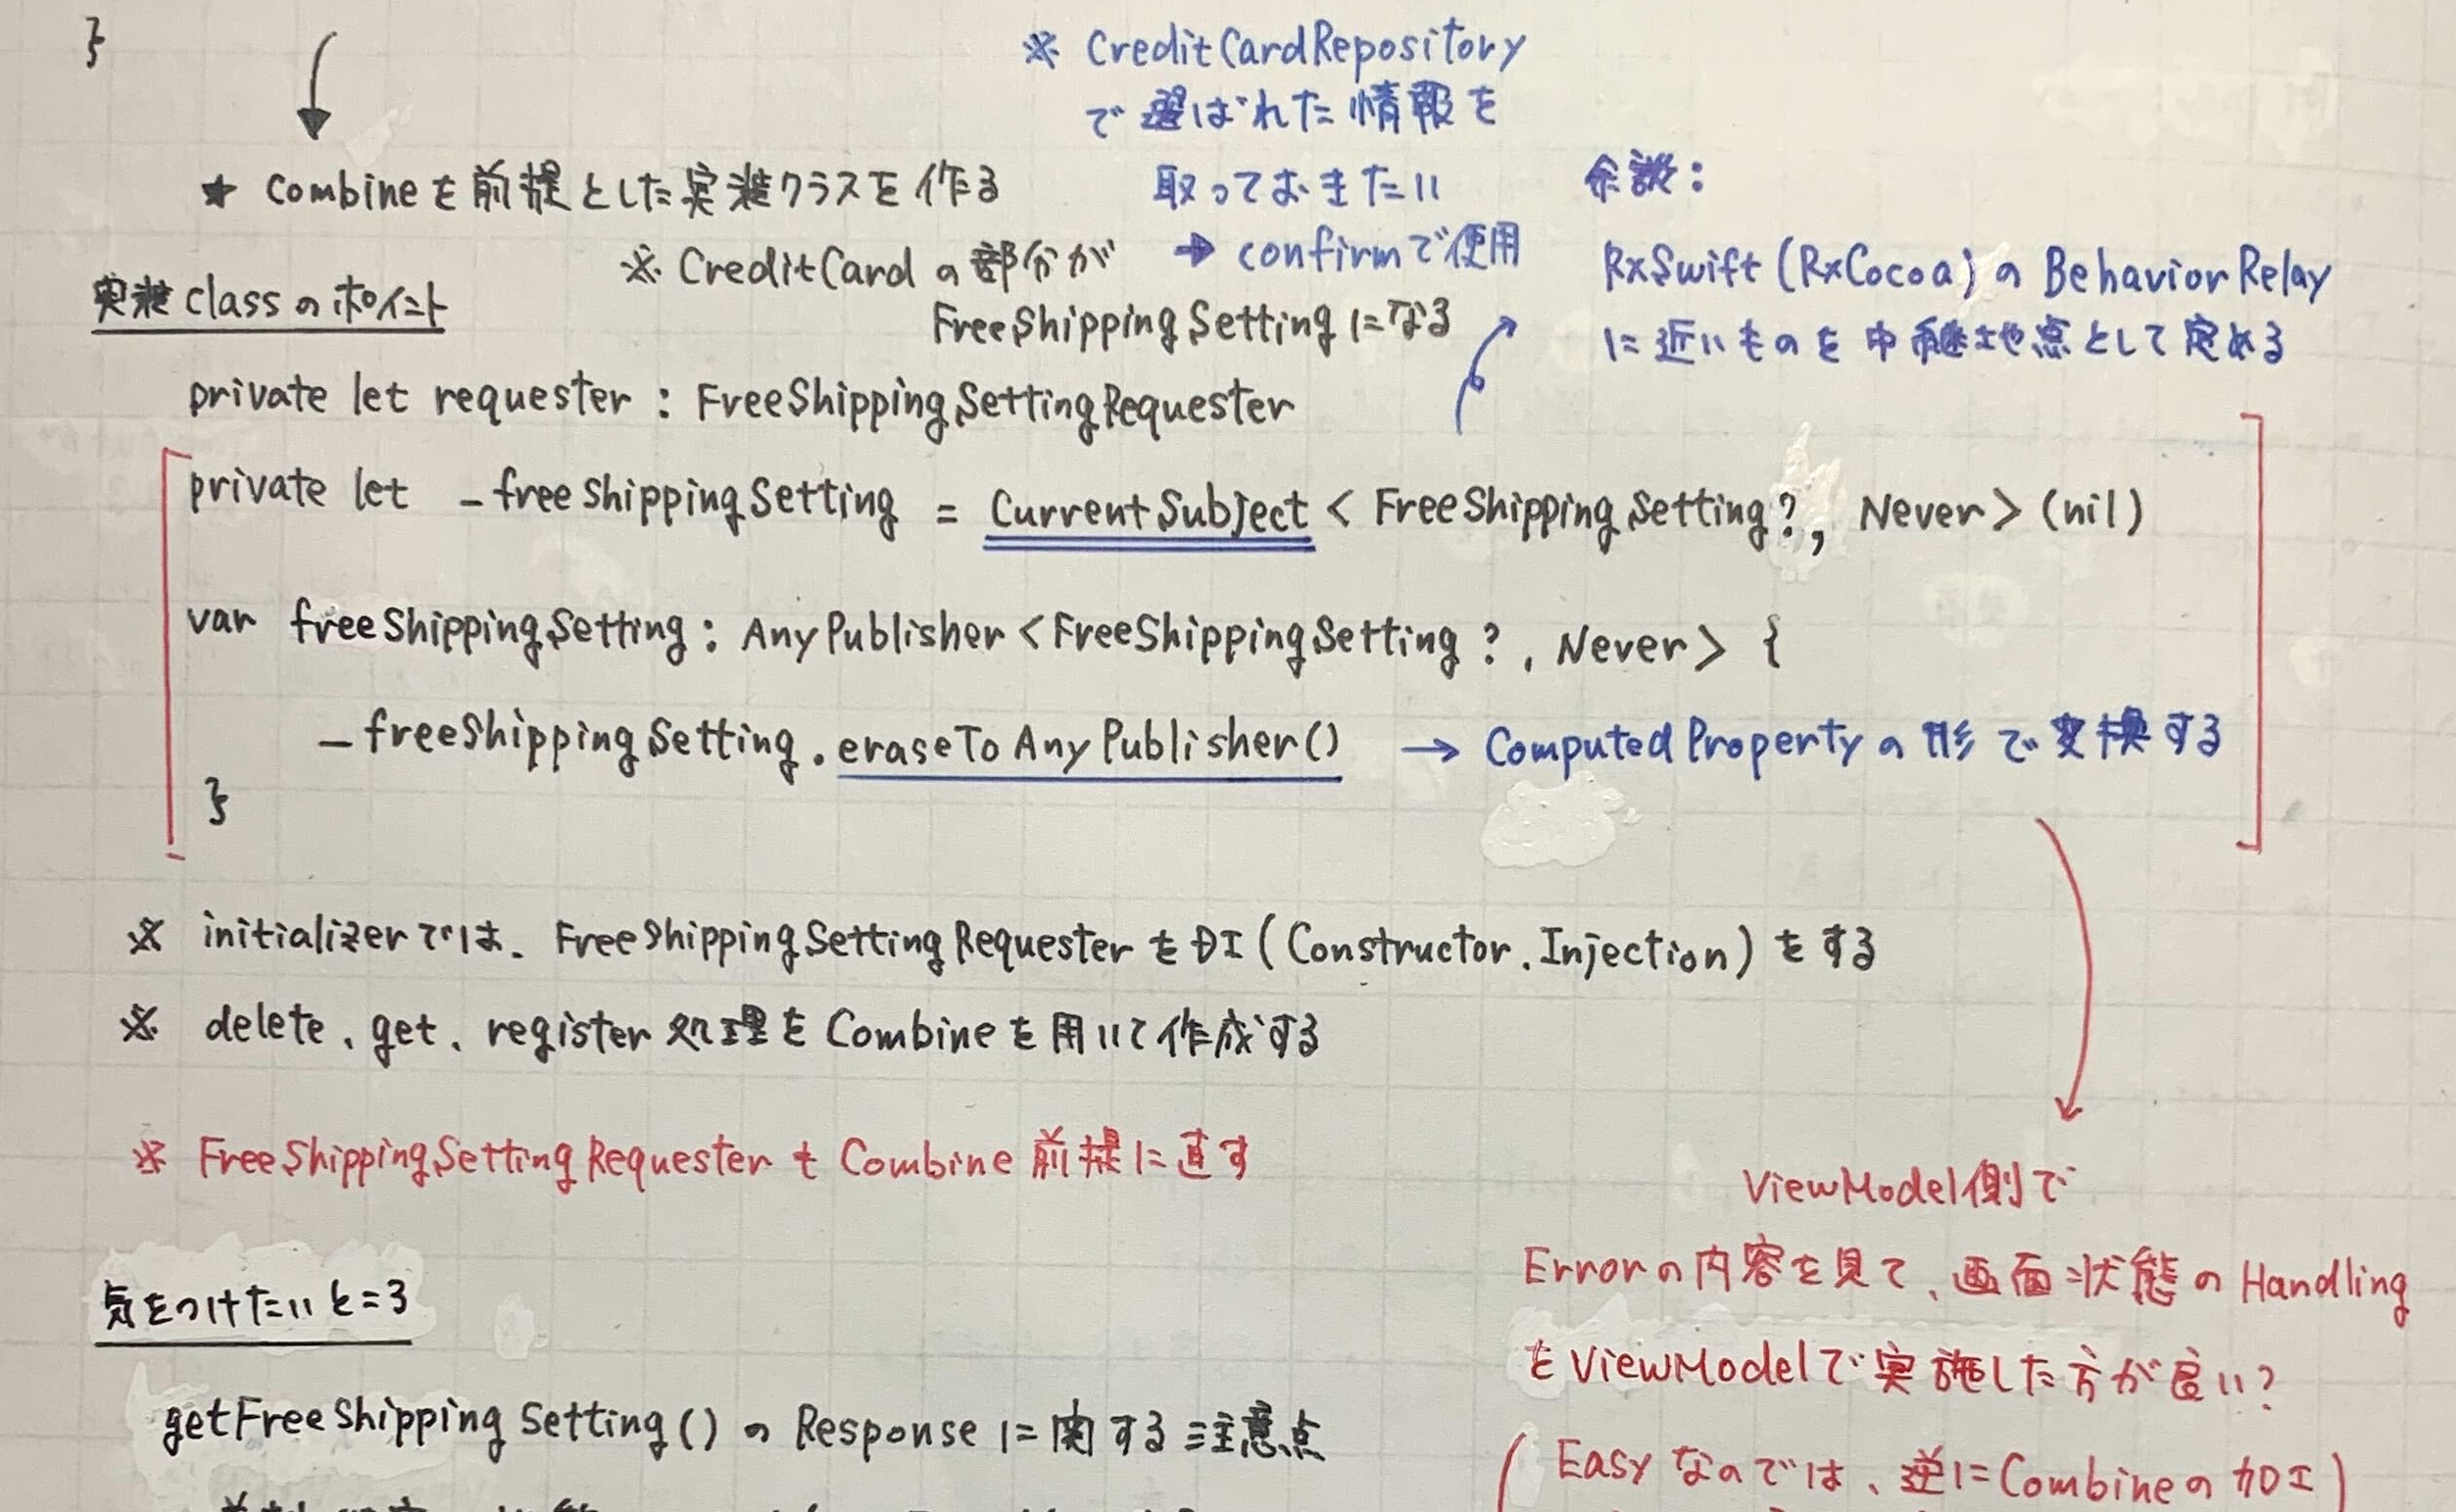 }
※ CreditCardRepository
で選ばれた情報を
取っておきたい
→ confirmで使用
★ Combineを前提とした実装クラスを作る
※ CreditCardの部分が
FreeShippingSettingになる
余談:
RxSwift(RxCocoa)のBehaviorRelay
に近いものを中継地点として定める
実装classのポイント
private let requester : FreeShippingSettingRequester
private let _freeShippingSetting = CurrentSubject < FreeShippingSetting?, Never> (nil)
var freeShippingSetting : AnyPublisher < FreeShippingSetting ?, Never> {
_freeShippingSetting.eraseToAnyPublisher() → ComputedPropertyの形で変換する
}
※ initializerでは、FreeShippingSettingRequesterをDI(Constructor.Injection)をする
※ delete、get、register処理をCombineを用いて作成する
※ FreeShippingSettingRequesterもCombine前提に直す
ViewModel側で
Errorの内容を見て、画面状態のHandling
をViewModelで実施した方が良い?
(Easyなのでは、逆にCombineの加工)
気をつけたいところ
getFreeShippingSetting()のResponseに関する注意点